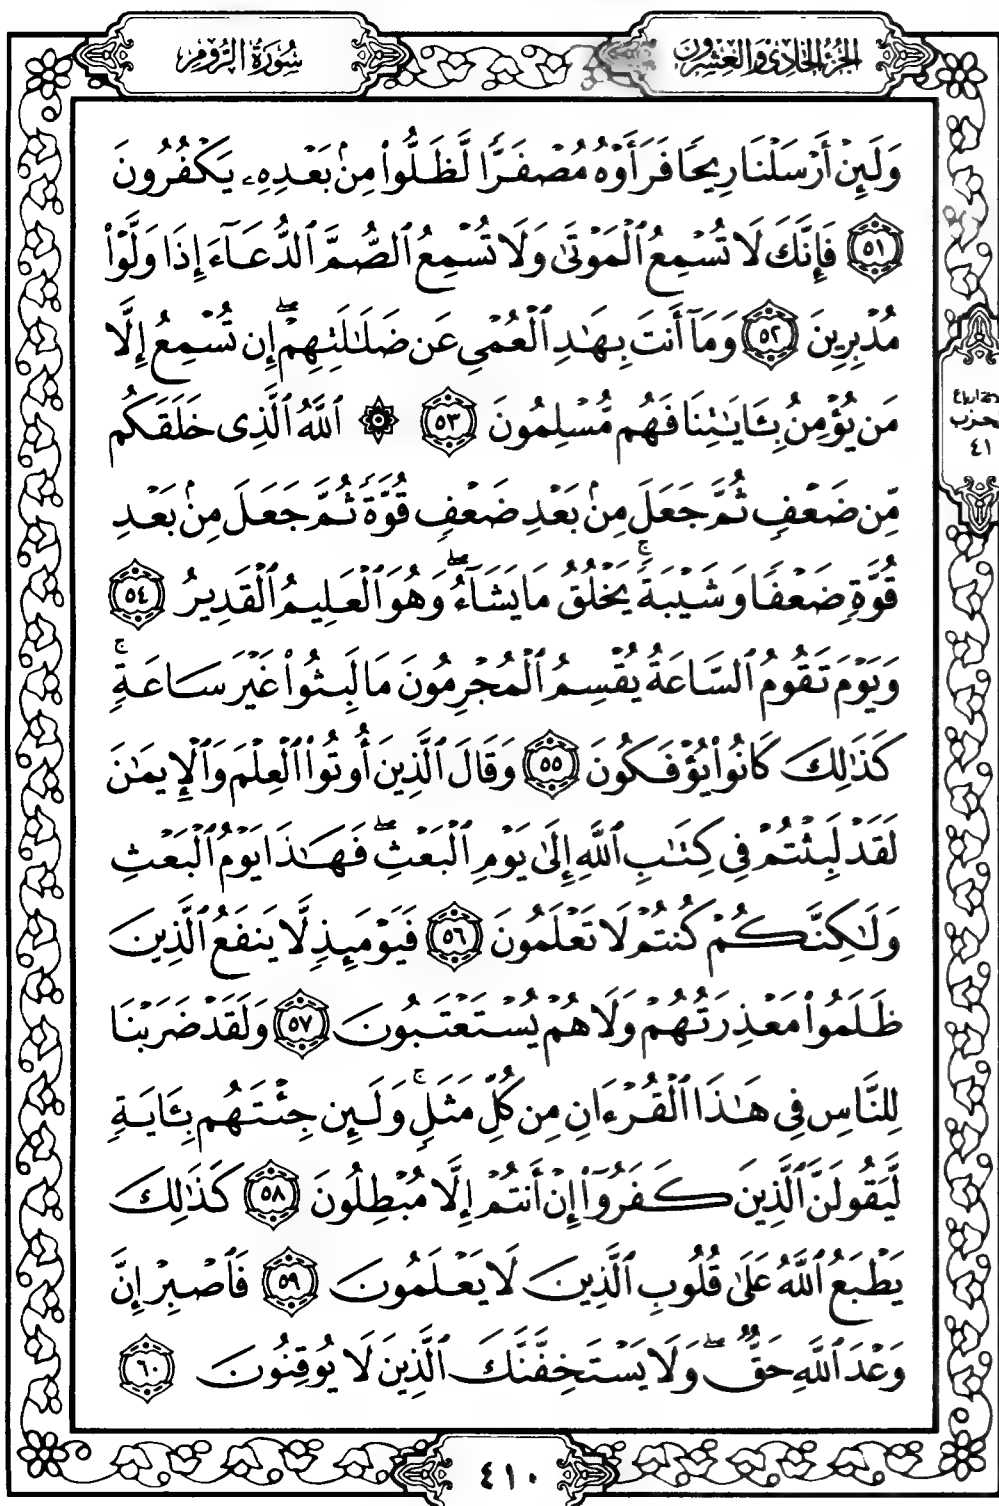 الجزء الحادي والعشرون
سورة الروم
وَلَئِنْ أَرْسَلْنَا رِيحًا فَرَأَوْهُ مُصْفَرًّا لَّظَلُّوا۟ مِنۢ بَعْدِهِۦ يَكْفُرُونَ
﴿٥١﴾ فَإِنَّكَ لَا تُسْمِعُ ٱلْمَوْتَىٰ وَلَا تُسْمِعُ ٱلصُّمَّ ٱلدُّعَآءَ إِذَا وَلَّوْا۟
مُدْبِرِينَ ﴿٥٢﴾ وَمَآ أَنتَ بِهَـٰدِ ٱلْعُمْىِ عَن ضَلَـٰلَتِهِمْ ۖ إِن تُسْمِعُ إِلَّا
مَن يُؤْمِنُ بِـَٔايَـٰتِنَا فَهُم مُّسْلِمُونَ ﴿٥٣﴾ ۞ ٱللَّهُ ٱلَّذِى خَلَقَكُم
مِّن ضَعْفٍ ثُمَّ جَعَلَ مِنۢ بَعْدِ ضَعْفٍ قُوَّةً ثُمَّ جَعَلَ مِنۢ بَعْدِ
قُوَّةٍ ضَعْفًا وَشَيْبَةً ۚ يَخْلُقُ مَا يَشَآءُ ۖ وَهُوَ ٱلْعَلِيمُ ٱلْقَدِيرُ ﴿٥٤﴾
وَيَوْمَ تَقُومُ ٱلسَّاعَةُ يُقْسِمُ ٱلْمُجْرِمُونَ مَا لَبِثُوا۟ غَيْرَ سَاعَةٍ ۚ
كَذَٰلِكَ كَانُوا۟ يُؤْفَكُونَ ﴿٥٥﴾ وَقَالَ ٱلَّذِينَ أُوتُوا۟ ٱلْعِلْمَ وَٱلْإِيمَـٰنَ
لَقَدْ لَبِثْتُمْ فِى كِتَـٰبِ ٱللَّهِ إِلَىٰ يَوْمِ ٱلْبَعْثِ ۖ فَهَـٰذَا يَوْمُ ٱلْبَعْثِ
وَلَـٰكِنَّكُمْ كُنتُمْ لَا تَعْلَمُونَ ﴿٥٦﴾ فَيَوْمَئِذٍ لَّا يَنفَعُ ٱلَّذِينَ
ظَلَمُوا۟ مَعْذِرَتُهُمْ وَلَا هُمْ يُسْتَعْتَبُونَ ﴿٥٧﴾ وَلَقَدْ ضَرَبْنَا
لِلنَّاسِ فِى هَـٰذَا ٱلْقُرْءَانِ مِن كُلِّ مَثَلٍ ۚ وَلَئِن جِئْتَهُم بِـَٔايَةٍ
لَّيَقُولَنَّ ٱلَّذِينَ كَفَرُوٓا۟ إِنْ أَنتُمْ إِلَّا مُبْطِلُونَ ﴿٥٨﴾ كَذَٰلِكَ
يَطْبَعُ ٱللَّهُ عَلَىٰ قُلُوبِ ٱلَّذِينَ لَا يَعْلَمُونَ ﴿٥٩﴾ فَٱصْبِرْ إِنَّ
وَعْدَ ٱللَّهِ حَقٌّ ۖ وَلَا يَسْتَخِفَّنَّكَ ٱلَّذِينَ لَا يُوقِنُونَ ﴿٦٠﴾
٤١
٤١٠